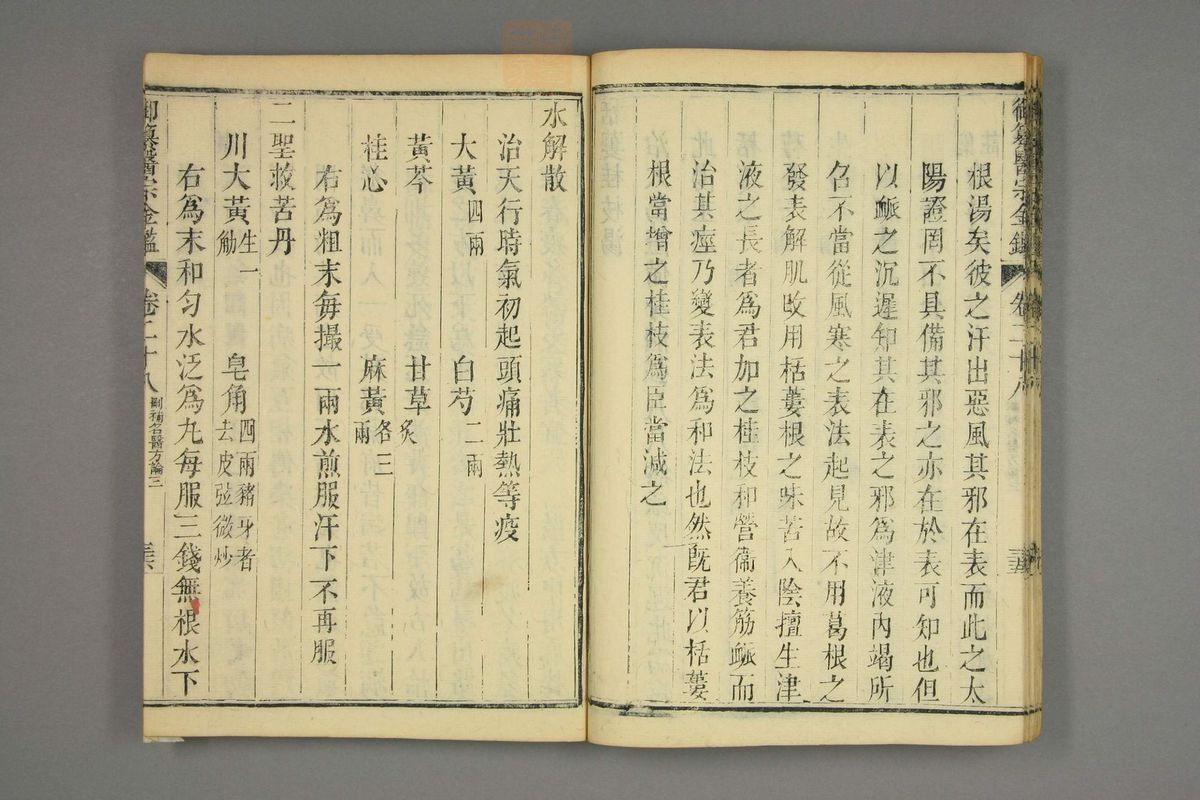 御纂醫宗金鑑 卷二十八
根湯矣彼之汗出惡風其邪在表而此之太
陽證罔不具備其邪之亦在於表可知也但
以脈之沉遲知其在表之邪爲津液內竭所
名不當從風寒之表法起見故不用葛根之
發表解肌改用栝蔞根之味苦入陰擅生津
液之長者爲君加之桂枝和營衞養筋脈而
治其痙乃變表法爲和法也然旣君以栝蔞
根當增之桂枝爲臣當減之
水解散
治天行時氣初起頭痛壯熱等疫
大黃四兩 白芍二兩
黃芩 甘草炙
桂心 麻黃各三兩
右爲粗末每撮一兩水煎服汗下不再服
二聖救苦丹
川大黃生一觔 皂角四兩豬牙者去皮弦微炒
右爲末和勻水泛爲丸每服三錢無根水下
御纂醫宗金鑑 卷二十八 刪補名醫方論三